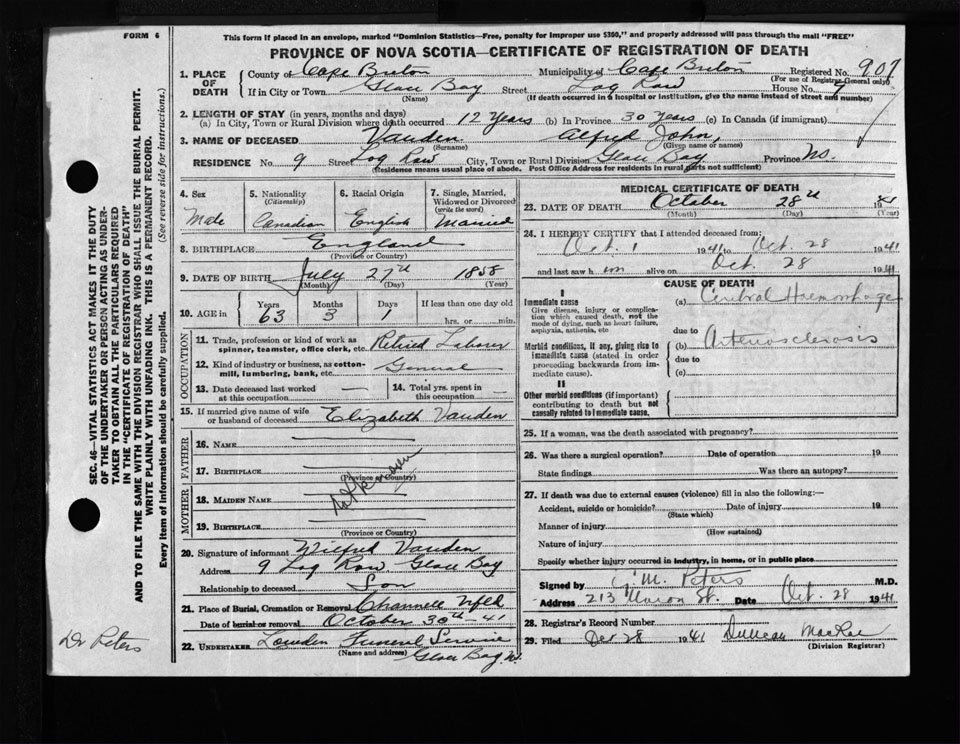 FORM 6
This form if placed in an envelope, marked "Dominion Statistics—Free, penalty for improper use $300," and properly addressed will pass through the mail "FREE"
PROVINCE OF NOVA SCOTIA—CERTIFICATE OF REGISTRATION OF DEATH
1. PLACE OF DEATH County of Cape Breton Municipality of Cape Breton Registered No. 907
(For use of Registrar General only)
If in City or Town Glace Bay Street Log Row House No. 9
(Name) (If death occurred in a hospital or institution, give the name instead of street and number)
2. LENGTH OF STAY (in years, months and days)
(a) In City, Town or Rural Division where death occurred 12 Years (b) In Province 30 Years (c) In Canada (if immigrant)
3. NAME OF DECEASED Vauden Alfred John,
(Surname) (Given name or names)
RESIDENCE No. 9 Street Log Row City, Town or Rural Division Glace Bay Province NS.
(Residence means usual place of abode. Post Office Address for residents in rural parts not sufficient)
4. Sex Male
5. Nationality (Citizenship) Canadian
6. Racial Origin English
7. Single, Married, Widowed or Divorced (write the word) Married
8. BIRTHPLACE England
(Province or Country)
9. DATE OF BIRTH July 27th 1858
(Month) (Day) (Year)
10. AGE in Years 63 Months 3 Days 1 If less than one day old hrs. or min.
OCCUPATION
11. Trade, profession or kind of work as spinner, teamster, office clerk, etc. Retired Laborer
12. Kind of industry or business, as cotton-mill, lumbering, bank, etc. General
13. Date deceased last worked at this occupation —
14. Total yrs. spent in this occupation —
15. If married give name of wife or husband of deceased Elizabeth Vauden
FATHER
16. NAME
17. BIRTHPLACE
(Province or Country)
MOTHER
18. MAIDEN NAME
19. BIRTHPLACE
(Province or Country)
not known
20. Signature of informant Wilfred Vauden
Address 9 Log Row Glace Bay
Relationship to deceased Son
21. Place of Burial, Cremation or Removal Channel Nfld
Date of burial or removal October 30th - 41
22. UNDERTAKER Lowden Funeral Service
(Name and address) Glace Bay NS.
MEDICAL CERTIFICATE OF DEATH
23. DATE OF DEATH October 28th 19 41
(Month) (Day) (Year)
24. I HEREBY CERTIFY that I attended deceased from:
Oct. 1 1941 to Oct. 28 1941
and last saw h im alive on Oct. 28 1941
CAUSE OF DEATH
I
Immediate cause
Give disease, injury or complication which caused death, not the mode of dying, such as heart failure, asphyxia, asthenia, etc
(a) Cerebral Haemorrhage
due to
Morbid conditions, if any, giving rise to immediate cause (stated in order proceeding backwards from immediate cause).
(b) Arteriosclerosis
due to
(c)
II
Other morbid conditions (if important) contributing to death but not causally related to immediate cause.
25. If a woman, was the death associated with pregnancy?
26. Was there a surgical operation? Date of operation 19
State findings Was there an autopsy?
27. If death was due to external causes (violence) fill in also the following:—
Accident, suicide or homicide? Date of injury 19
(State which)
Manner of injury
(How sustained)
Nature of injury
Specify whether injury occurred in industry, in home, or in public place
Signed by M. Peters M.D.
Address 213 St. Date Oct. 28 1941
28. Registrar's Record Number
29. Filed Oct 28 1941 Duncan MacRae
(Division Registrar)
SEC. 46—VITAL STATISTICS ACT MAKES IT THE DUTY
OF THE UNDERTAKER OR PERSON ACTING AS UNDER-
TAKER TO OBTAIN ALL THE PARTICULARS REQUIRED
IN THE "CERTIFICATE OF REGISTRATION OF DEATH"
AND TO FILE THE SAME WITH THE DIVISION REGISTRAR WHO SHALL ISSUE THE BURIAL PERMIT.
WRITE PLAINLY WITH UNFADING INK. THIS IS A PERMANENT RECORD.
Every item of information should be carefully supplied. (See reverse side for instructions.)
Dr Peters